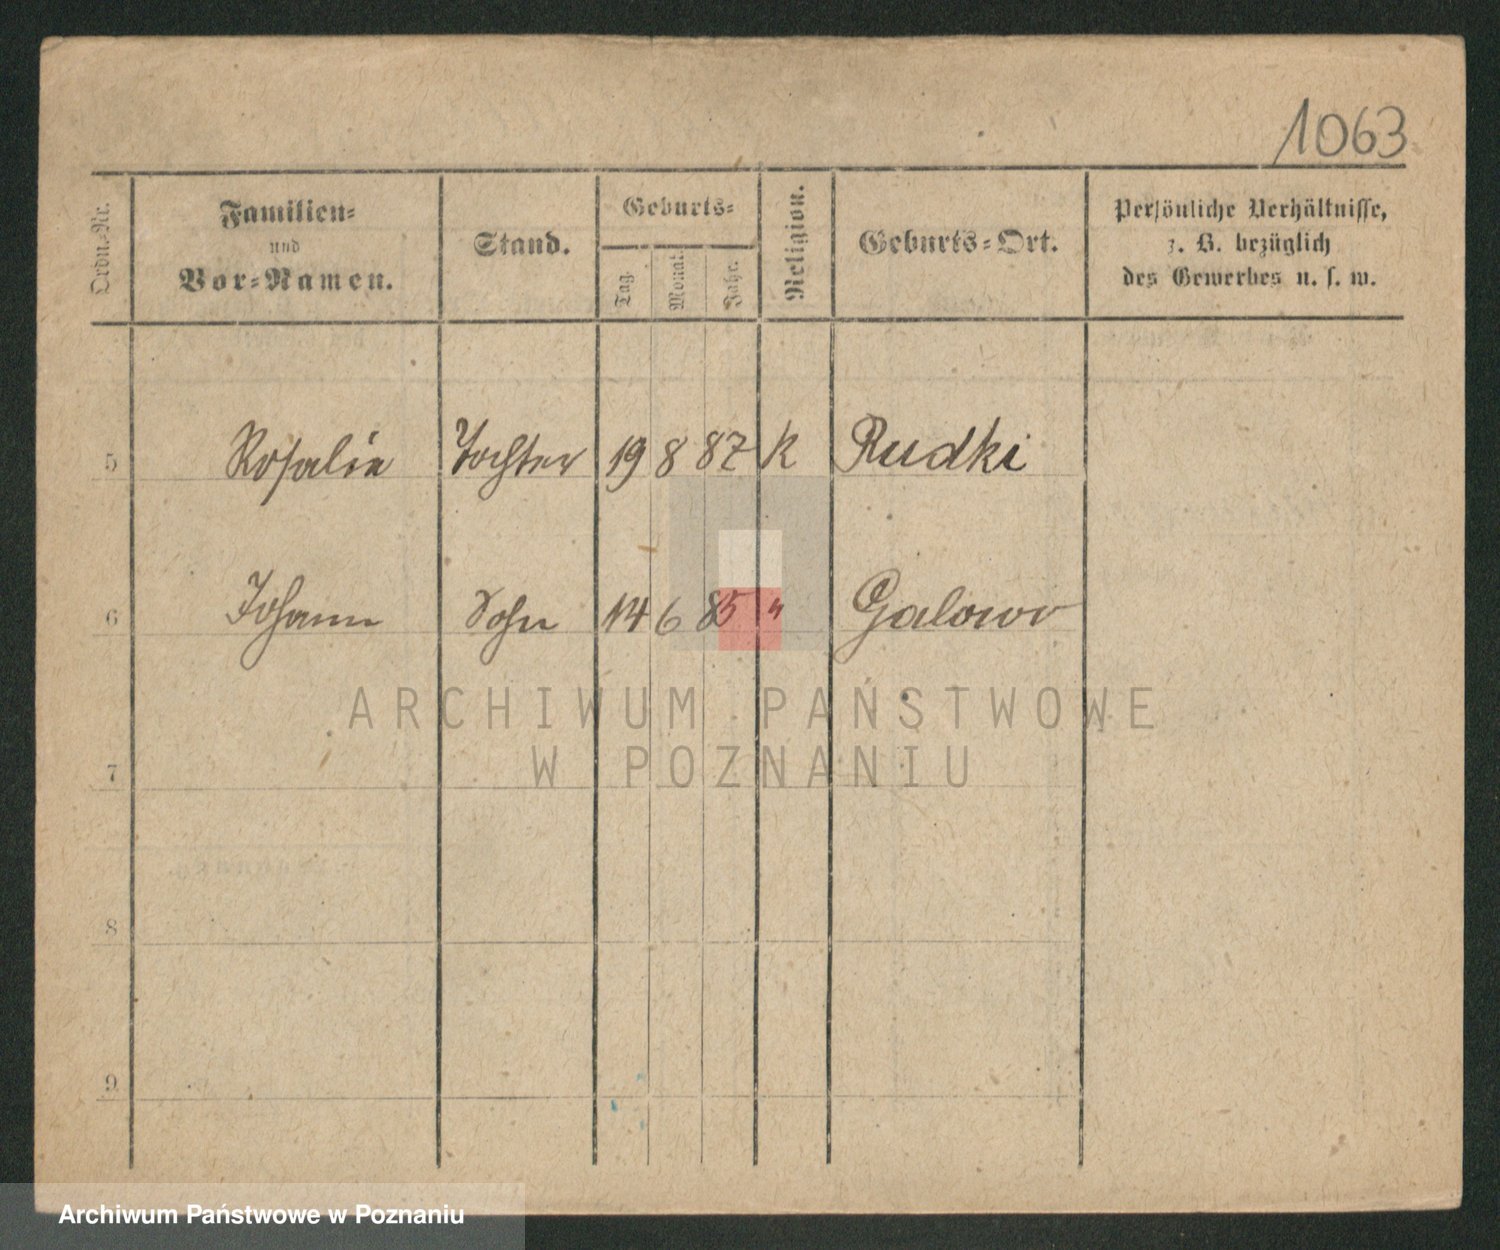 1063
Ordn.-Nr.
Familien-
und
Vor-Namen.
Stand.
Geburts-
Tag.
Monat.
Jahr.
Religion.
Geburts-Ort.
Persönliche Verhältnisse,
z. B. bezüglich
des Gewerbes u. s. w.
5 Rosalie Tochter 19 8 87 k Rudki
6 Johann Sohn 14 6 85 " Galowo
ARCHIWUM PAŃSTWOWE
W POZNANIU
7
8
9
Archiwum Państwowe w Poznaniu